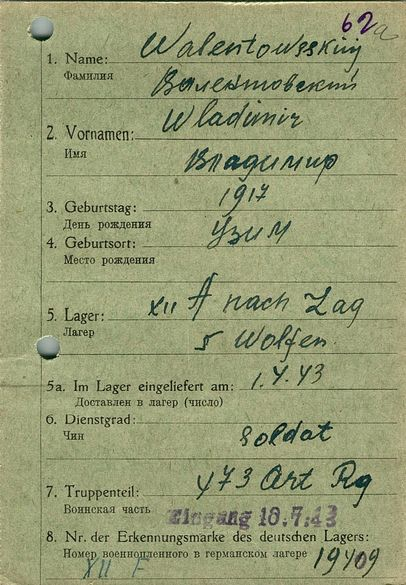 62a
1. Name: Walentowsskij
Фамилия Валентовский
2. Vornamen: Wladimir
Имя Владимир
3. Geburtstag: 1917
День рождения
4. Geburtsort: Узим
Место рождения
5. Lager: XII A nach Lag
Лагер 5 Wolfen
5a. Im Lager eingeliefert am: 1.4.43
Доставлен в лагер (число)
6. Dienstgrad:
Чин Soldat
7. Truppenteil: 473 Art Rg
Воинская часть Eingang 18.7.43
8. Nr. der Erkennungsmarke des deutschen Lagers:
Номер военнопленного в германском лагере 19409
XII F